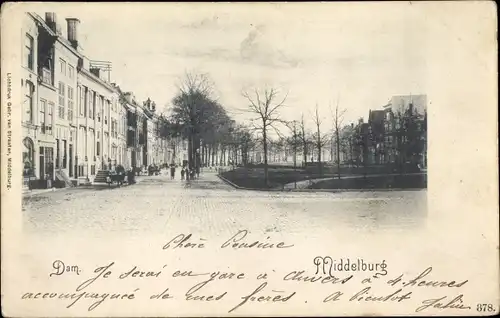 DAM MIDDELBURG
Lichtdruk Gebr. van Straaten, Middelburg.
Chère Cousine
Dam. Middelburg
Je serai en gare à Anvers à 4 heures
accompagnée de mes frères. à bientôt
378.